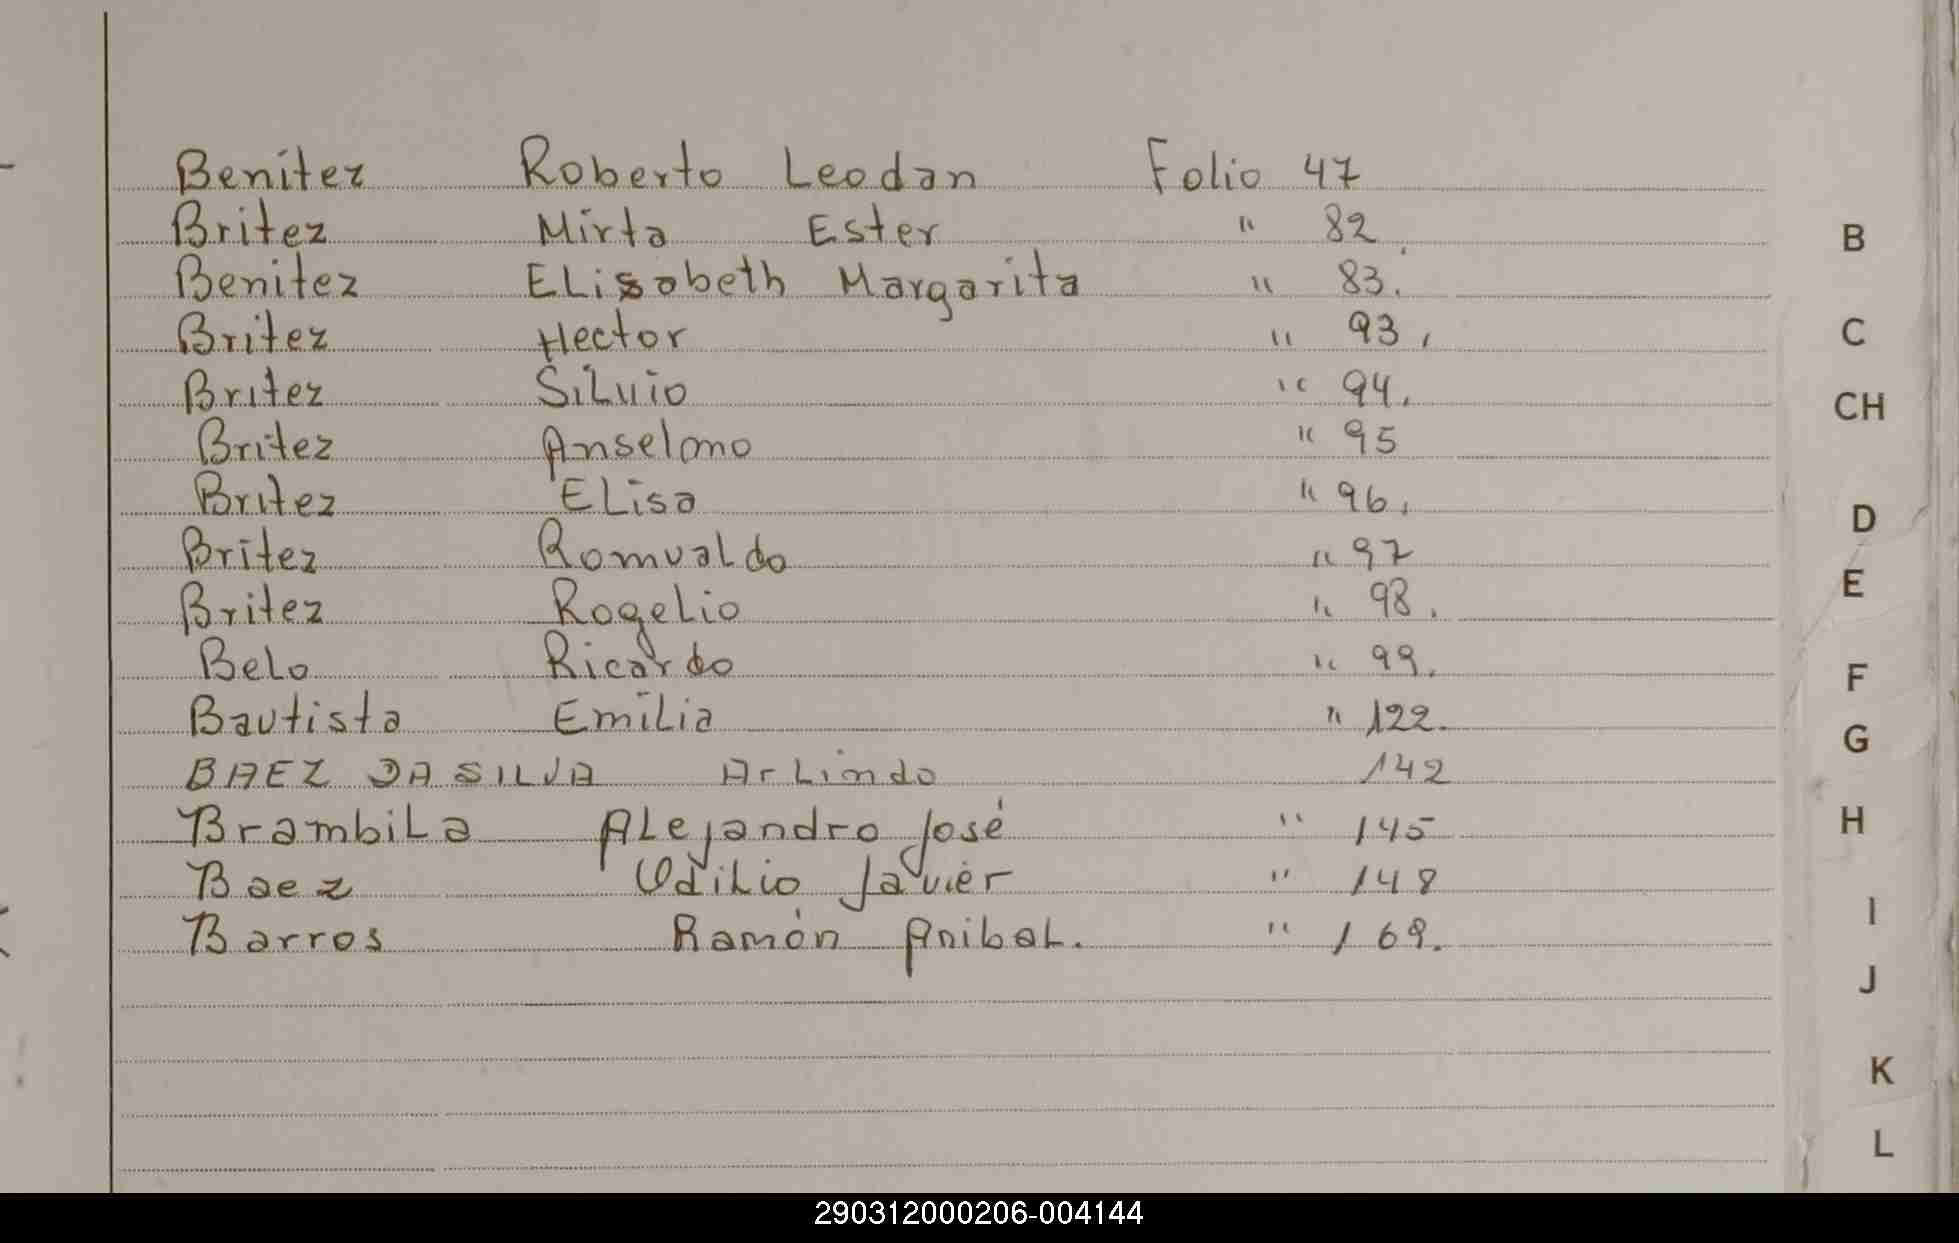 Benitez Roberto Leodan Folio 47
Britez Mirta Ester " 82
Benitez Elisabeth Margarita " 83.
Britez Hector " 93.
Britez Silvio " 94.
Britez Anselmo " 95
Britez Elisa " 96.
Britez Romualdo " 97
Britez Rogelio " 98.
Belo Ricardo " 99.
Bautista Emilia " 122.
BAEZ DA SILVA Arlindo 142
Brambila Alejandro José " 145
Baez Odilio Javier " 148
Barros Ramón Anibal. " 169.
B
C
CH
D
E
F
G
H
I
J
K
L
290312000206-004144